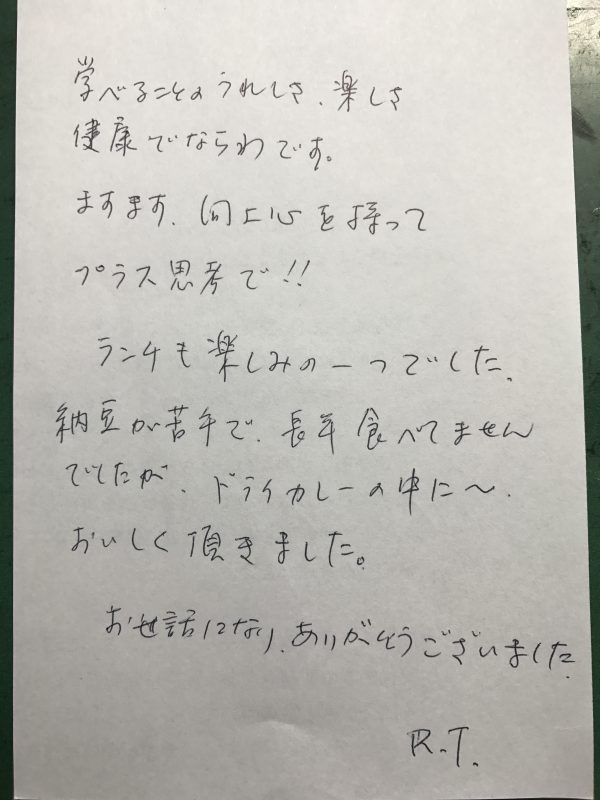 学べることのうれしさ、楽しさ
健康でならわです。
ますます、向上心を持って
プラス思考で!!
ランチも楽しみの一つでした、
納豆が苦手で、長年食べてません
でしたが、ドライカレーの中に〜、
おいしく頂きました。
お世話になり、ありがとうございました
R.T.